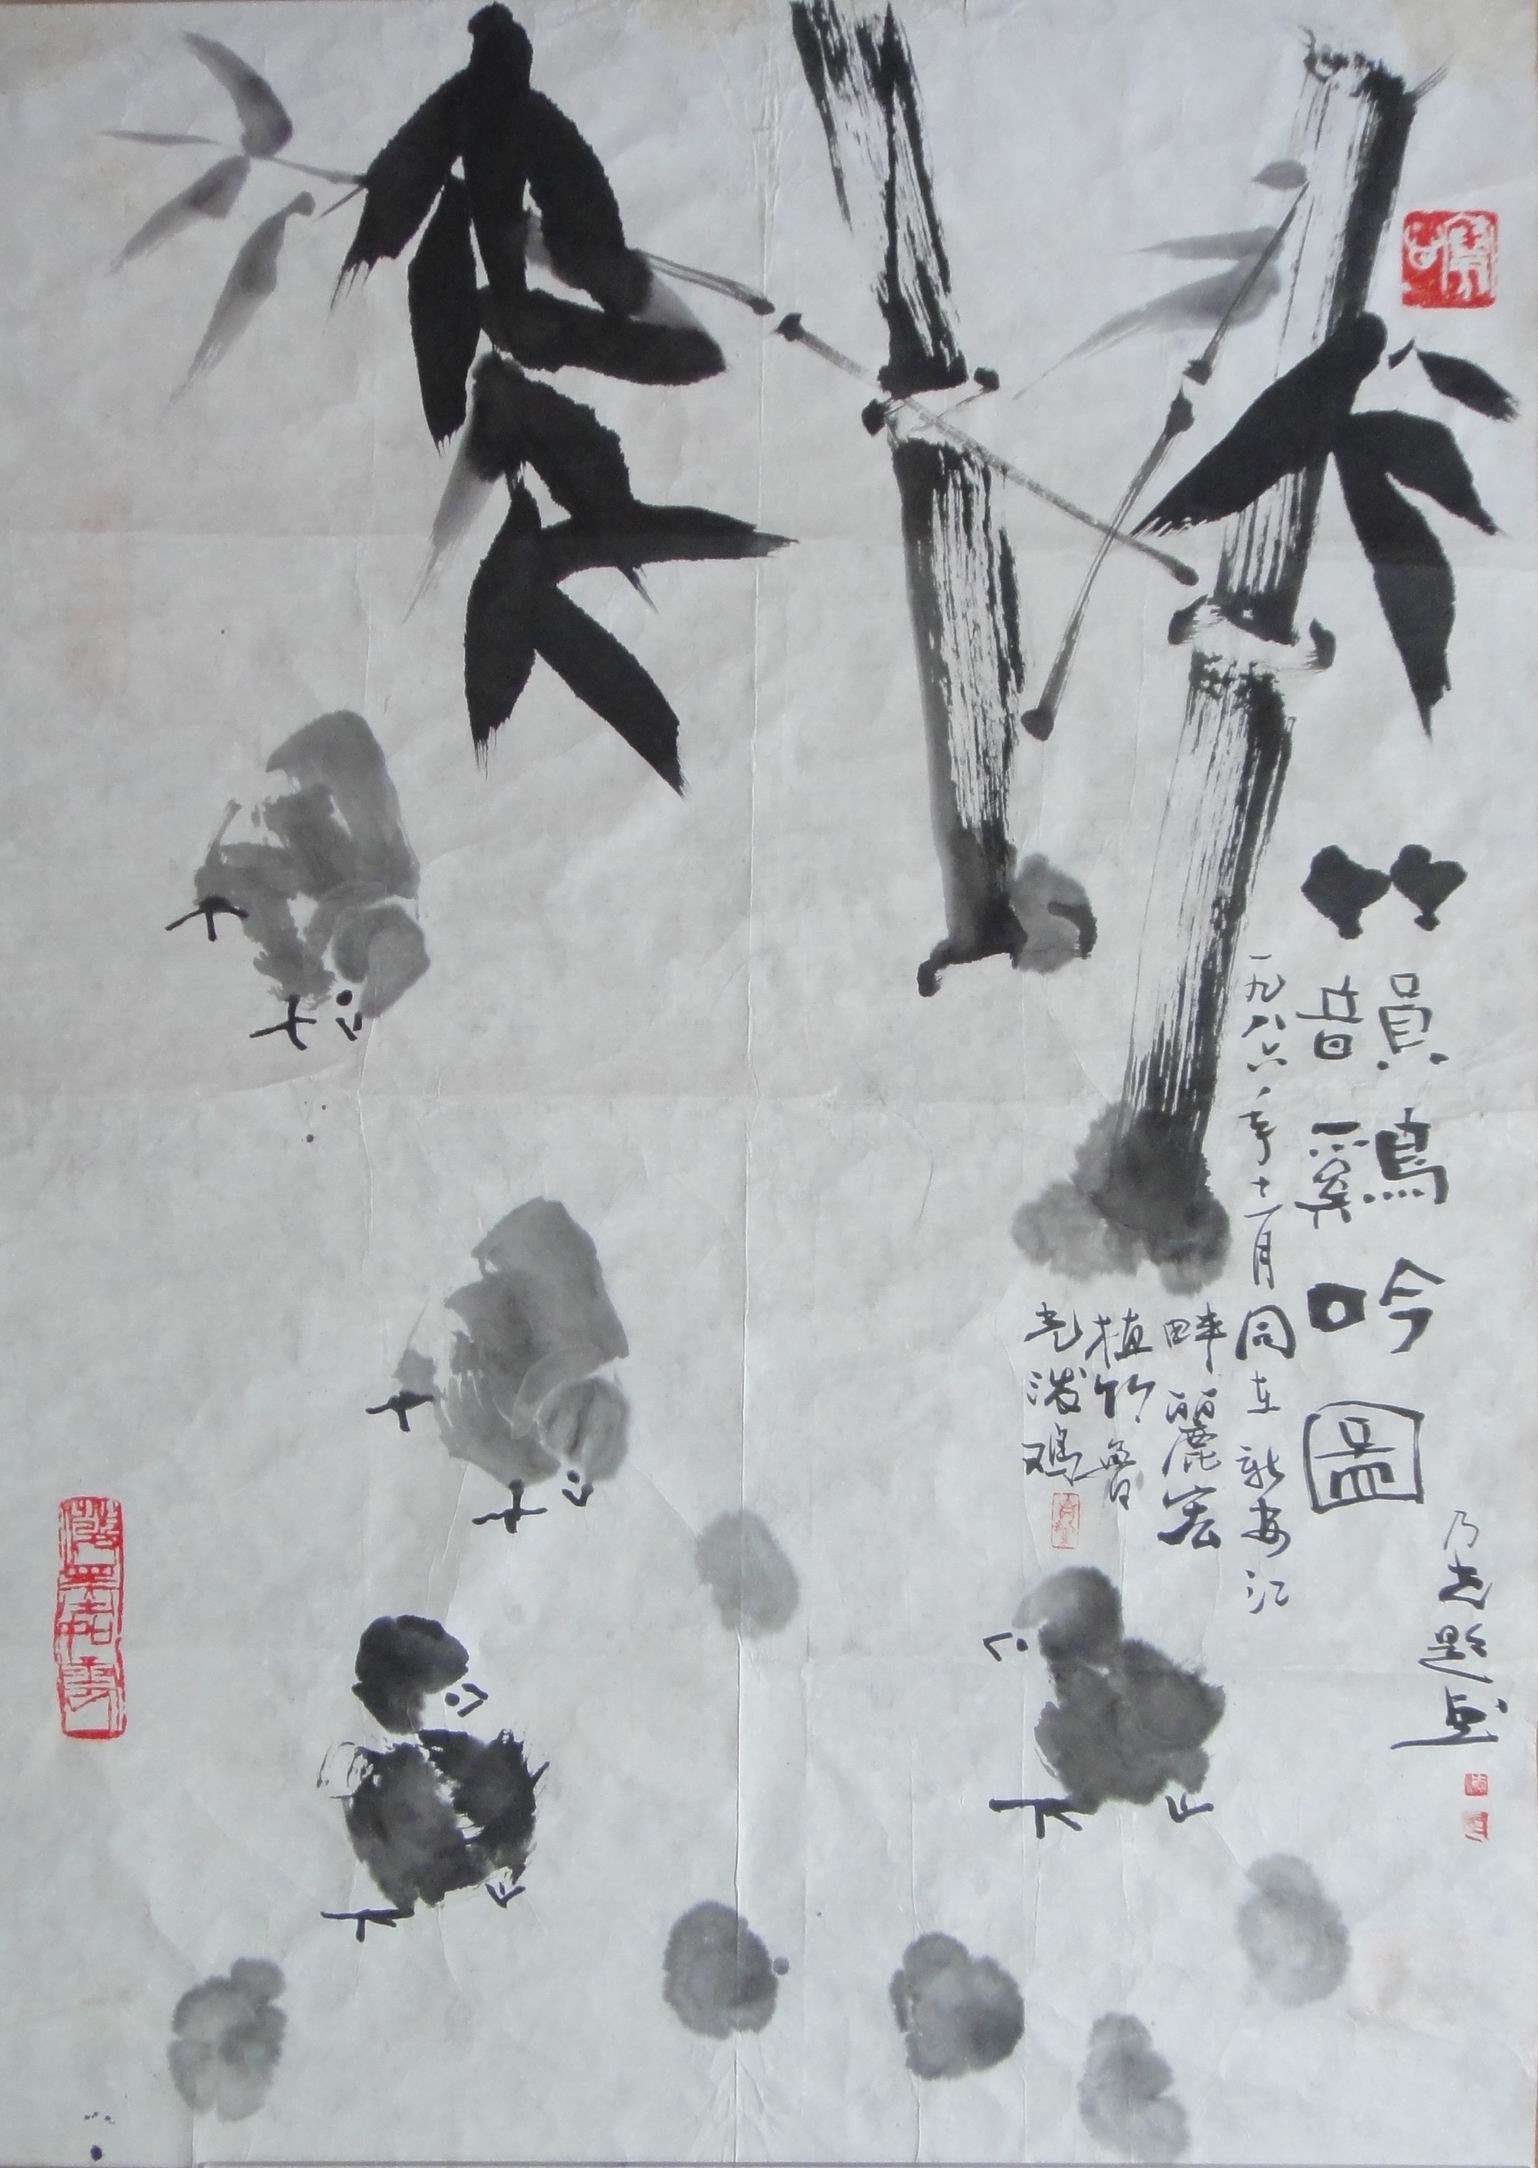 竹韻鷄吟圖
乃光題画
一九八六年十一月同在新安江
畔麗宏
植竹魯
光潑鸡